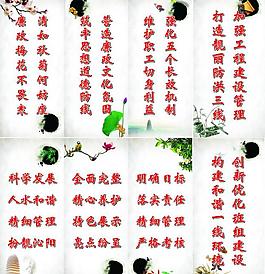 清如秋菊何妨瘦
廉政梅花不畏寒
营造廉政文化氛围
筑牢思想道德防线
强化五个长效机制
维护职工切身利益
加强工程建设管理
打造靓丽防洪三线
科学发展
人水和谐
精细管理
扮靓沁阳
全面完善
精心养护
特色展示
亮点纷呈
明确目标
落实责任
精细管理
严格考核
创新优化班组建设
构建和谐一线环境